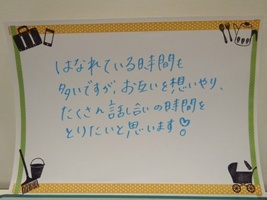 はなれている時間も
多いですが、お互いを想いやり、
たくさん話し合いの時間を
とりたいと思います!